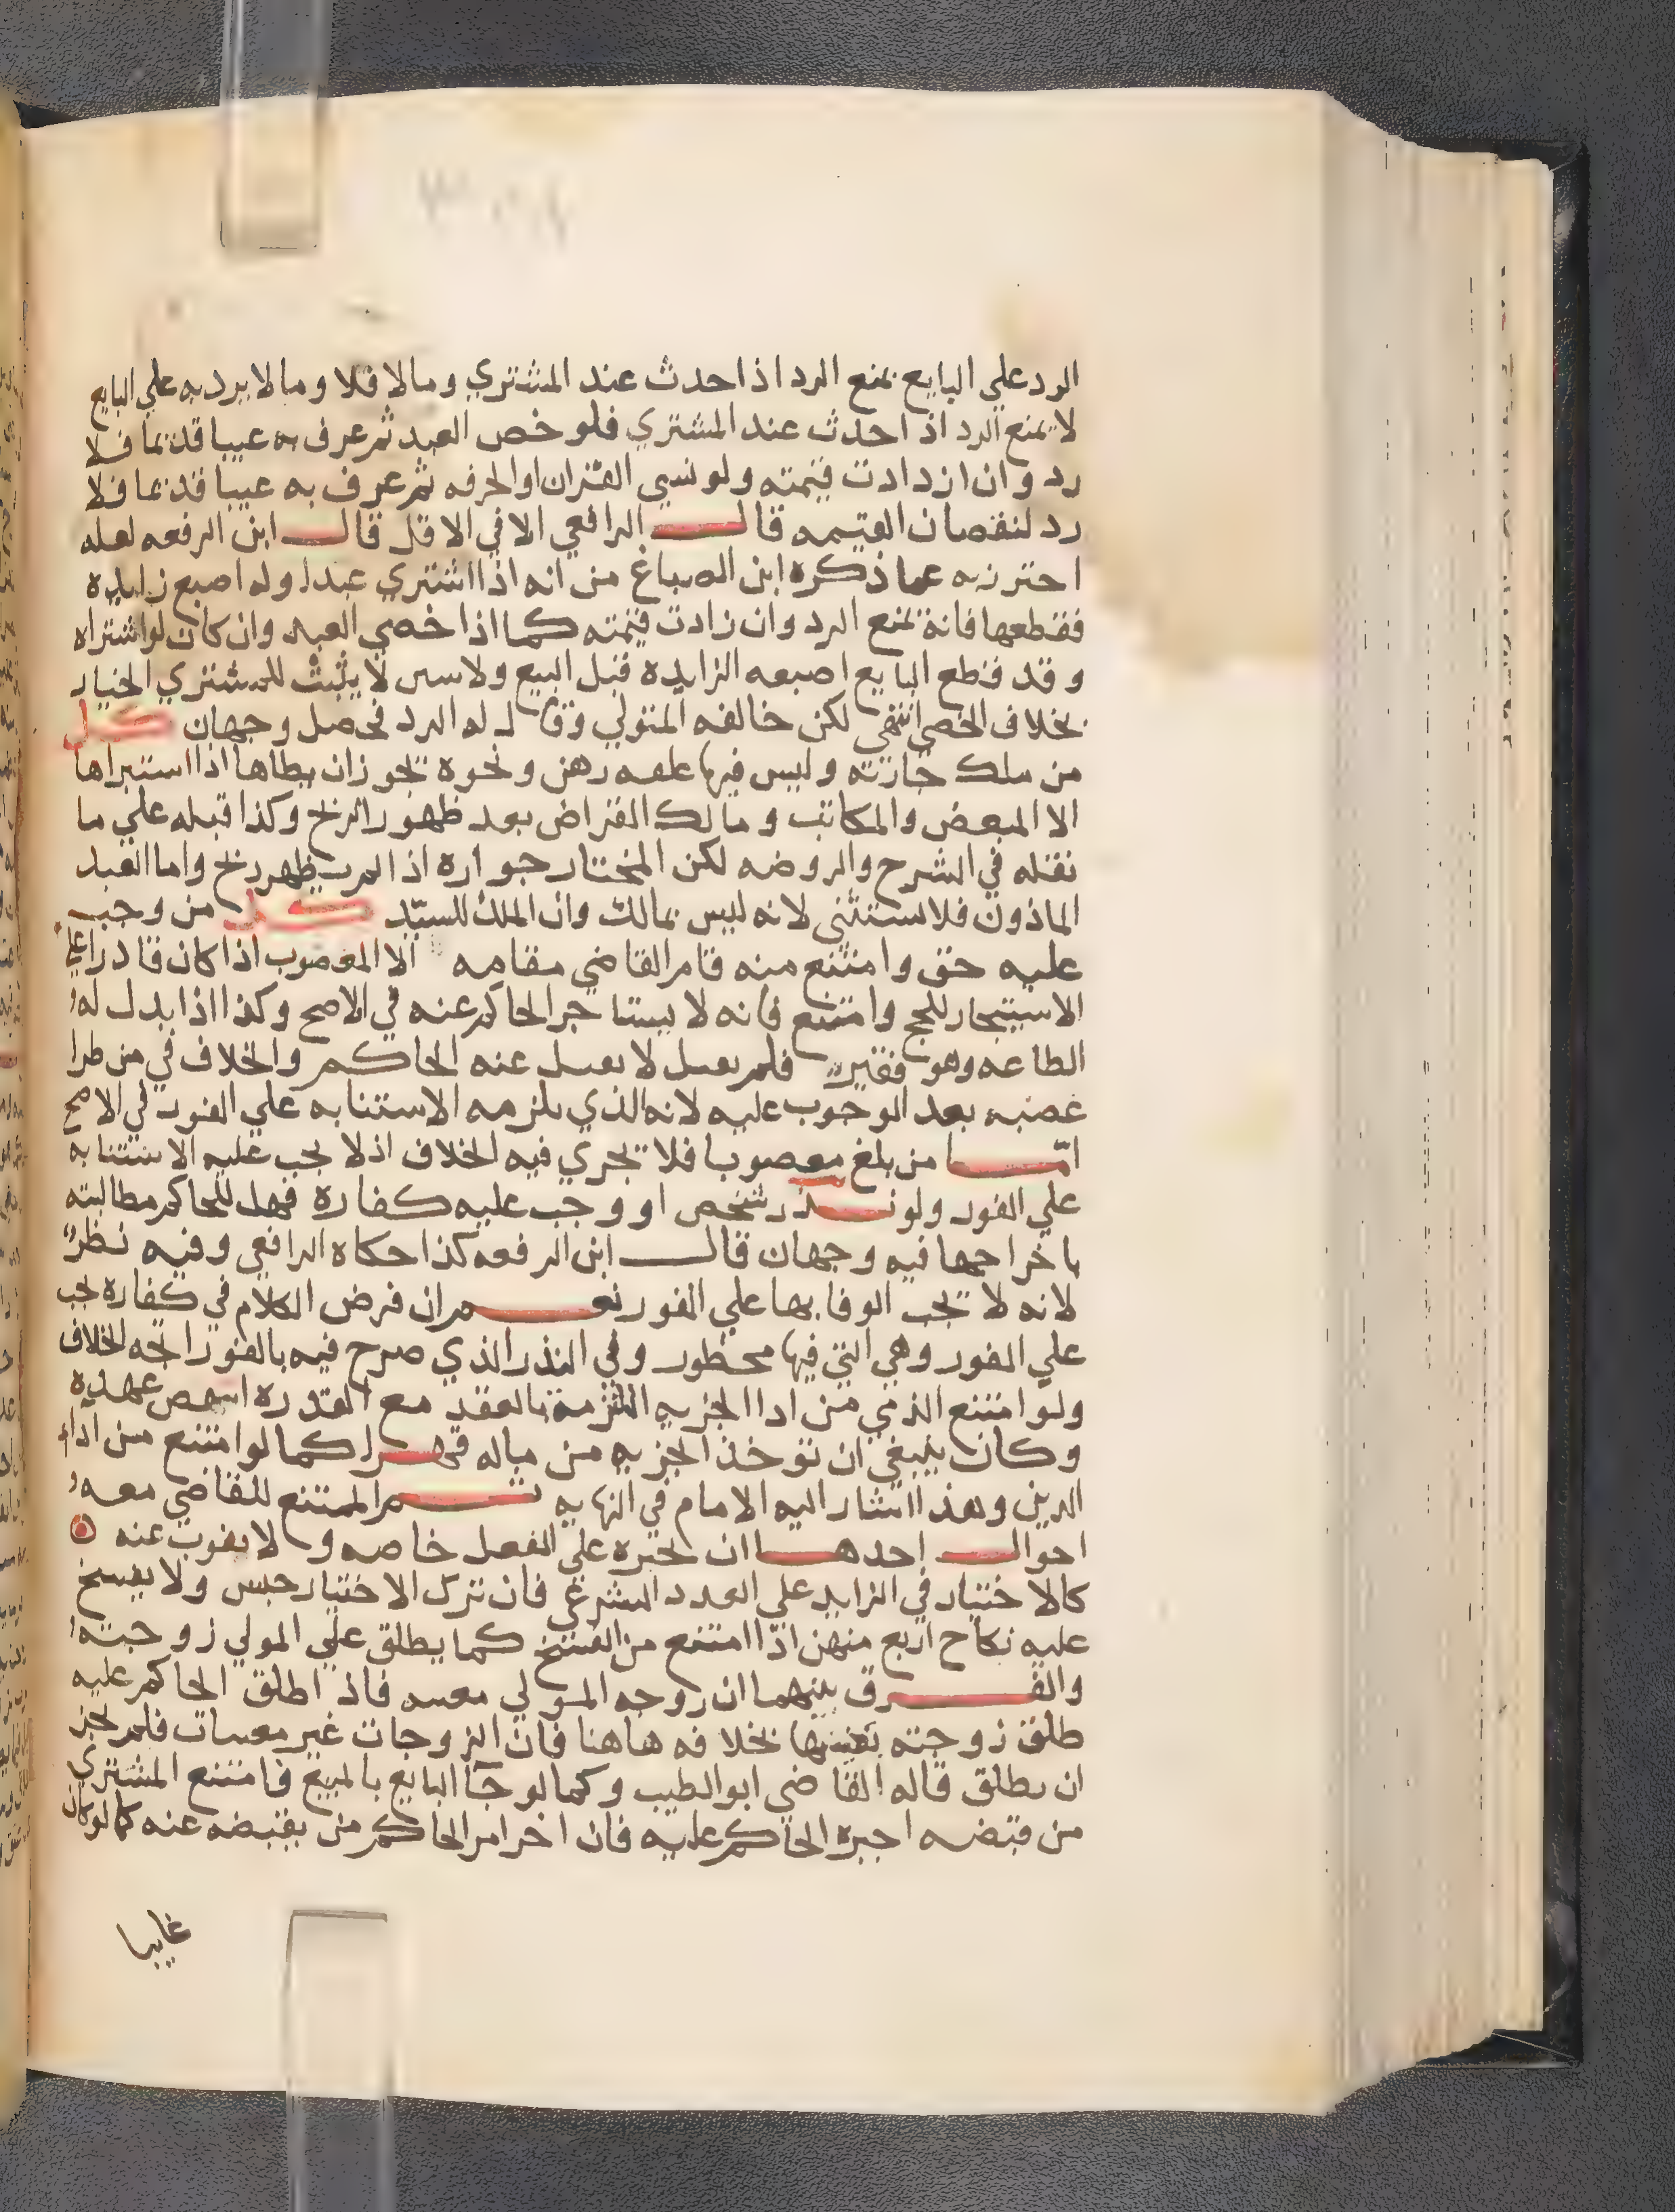 الرد علي البايع يمنع الرد اذا حدث عند المشتري ومالا فلا ومالا يرد به علي البايع
لا يمنع الرد اذا حدث عند المشتري فلو خص العبد ثم عرف به عيبا قديما فلا
رد وان ازدادت قيمته ولو نسي القران او الحرفه ثم عرف به عيبا قديما فلا
رد لنقصان القيمه قال الرافعي الا في الاقل قال ابن الرفعه لعله
احترز به عما ذكره ابن الصباغ من انه اذا اشتري عبدا وله اصبع زايده
فقطعها فانه يمنع الرد وان زادت قيمته كما اذا خصي العبد وان كان لو اشتراه
وقد قطع البايع اصبعه الزايده قبل البيع ولا سىں لا يثبت للمشتري الخيار
بخلاف الخصي انتهي لكن خالفه المتولي وقال له الرد فحصل وجهان كل
من ملك جاريته وليس فيها علقه رهن ونحوه يجوز ان يطاها اذا استبراها
الا المبعض والمكاتب ومالك القراض بعد ظهور الربح وكذا قبله علي ما
نقله في الشرح والروضه لكن المختار جوازه اذا لم يظهر ربح واما العبد
الماذون فلا يستثني لانه ليس بمالك وان الملك للسيد كل من وجب
عليه حق وامتنع منه قام القاضي مقامه الا المعضوب اذا كان قادرا علي
الاستيجار للحج وامتنع فانه لا يستاجر الحاكم عنه في الاصح وكذا اذا بدل له
الطاعه وهو فقير فلم يقبل لا يقبل عنه الحاكم والخلاف في من طرا
عضبه بعد الوجوب عليه لانه الذي يلزمه الاستنابه علي الفور في الاصح
اما من بلغ معضوبا فلا يجري فيه الخلاف اذ لا يجب عليه الاستنابه
علي الفور ولو نذر شخص او وجب عليه كفاره فهل للحاكم مطالبته
باخراجها فيه وجهان قال ابن الرفعه كذا حكاه الرافعي وفيه نظر
لانه لا يجب الوفا بها علي الفور نعم ان فرض الكلام في كفاره يجب
علي الفور وهي التي فيها محظور وفي النذر الذي صرح فيه بالفور اتجه الخلاف
ولو امتنع الذمي من ادا الجزيه الملتزمه بالعقد مع القدره انتقض عهده
وكان ينبغي ان توخذ الجزيه من ماله قهرا كما لو امتنع من اداء
الدين وهذا اشار اليه الامام في النهايه ثم الممتنع للقاضي معه
احوال احدها ان يجبره علي الفعل خاصه و لا ينوب عنه
كالاختيار في الزايد علي العدد الشرعي فان ترك الاختيار حبس ولا يفسخ
عليه نكاح اربع منهن اذا امتنع من الفسخ كما يطلق علي المولي زوجته
والفرق بينهما ان زوجه المولي معينه فاذا اطلق الحاكم عليه
طلق زوجته بعينها بخلافه هاهنا فان الزوجات غير معينات فلم يجز
ان يطلق قاله القاضي ابو الطيب وكما لو جآ البايع بالمبيع فامتنع المشتري
من قبضه اجبره الحاكم عليه فان اخر امر الحاكم من يقبضه عنه كما لو كان
غايبا